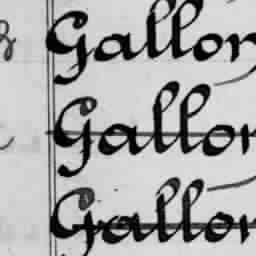 Gallon
Gallon
Gallon